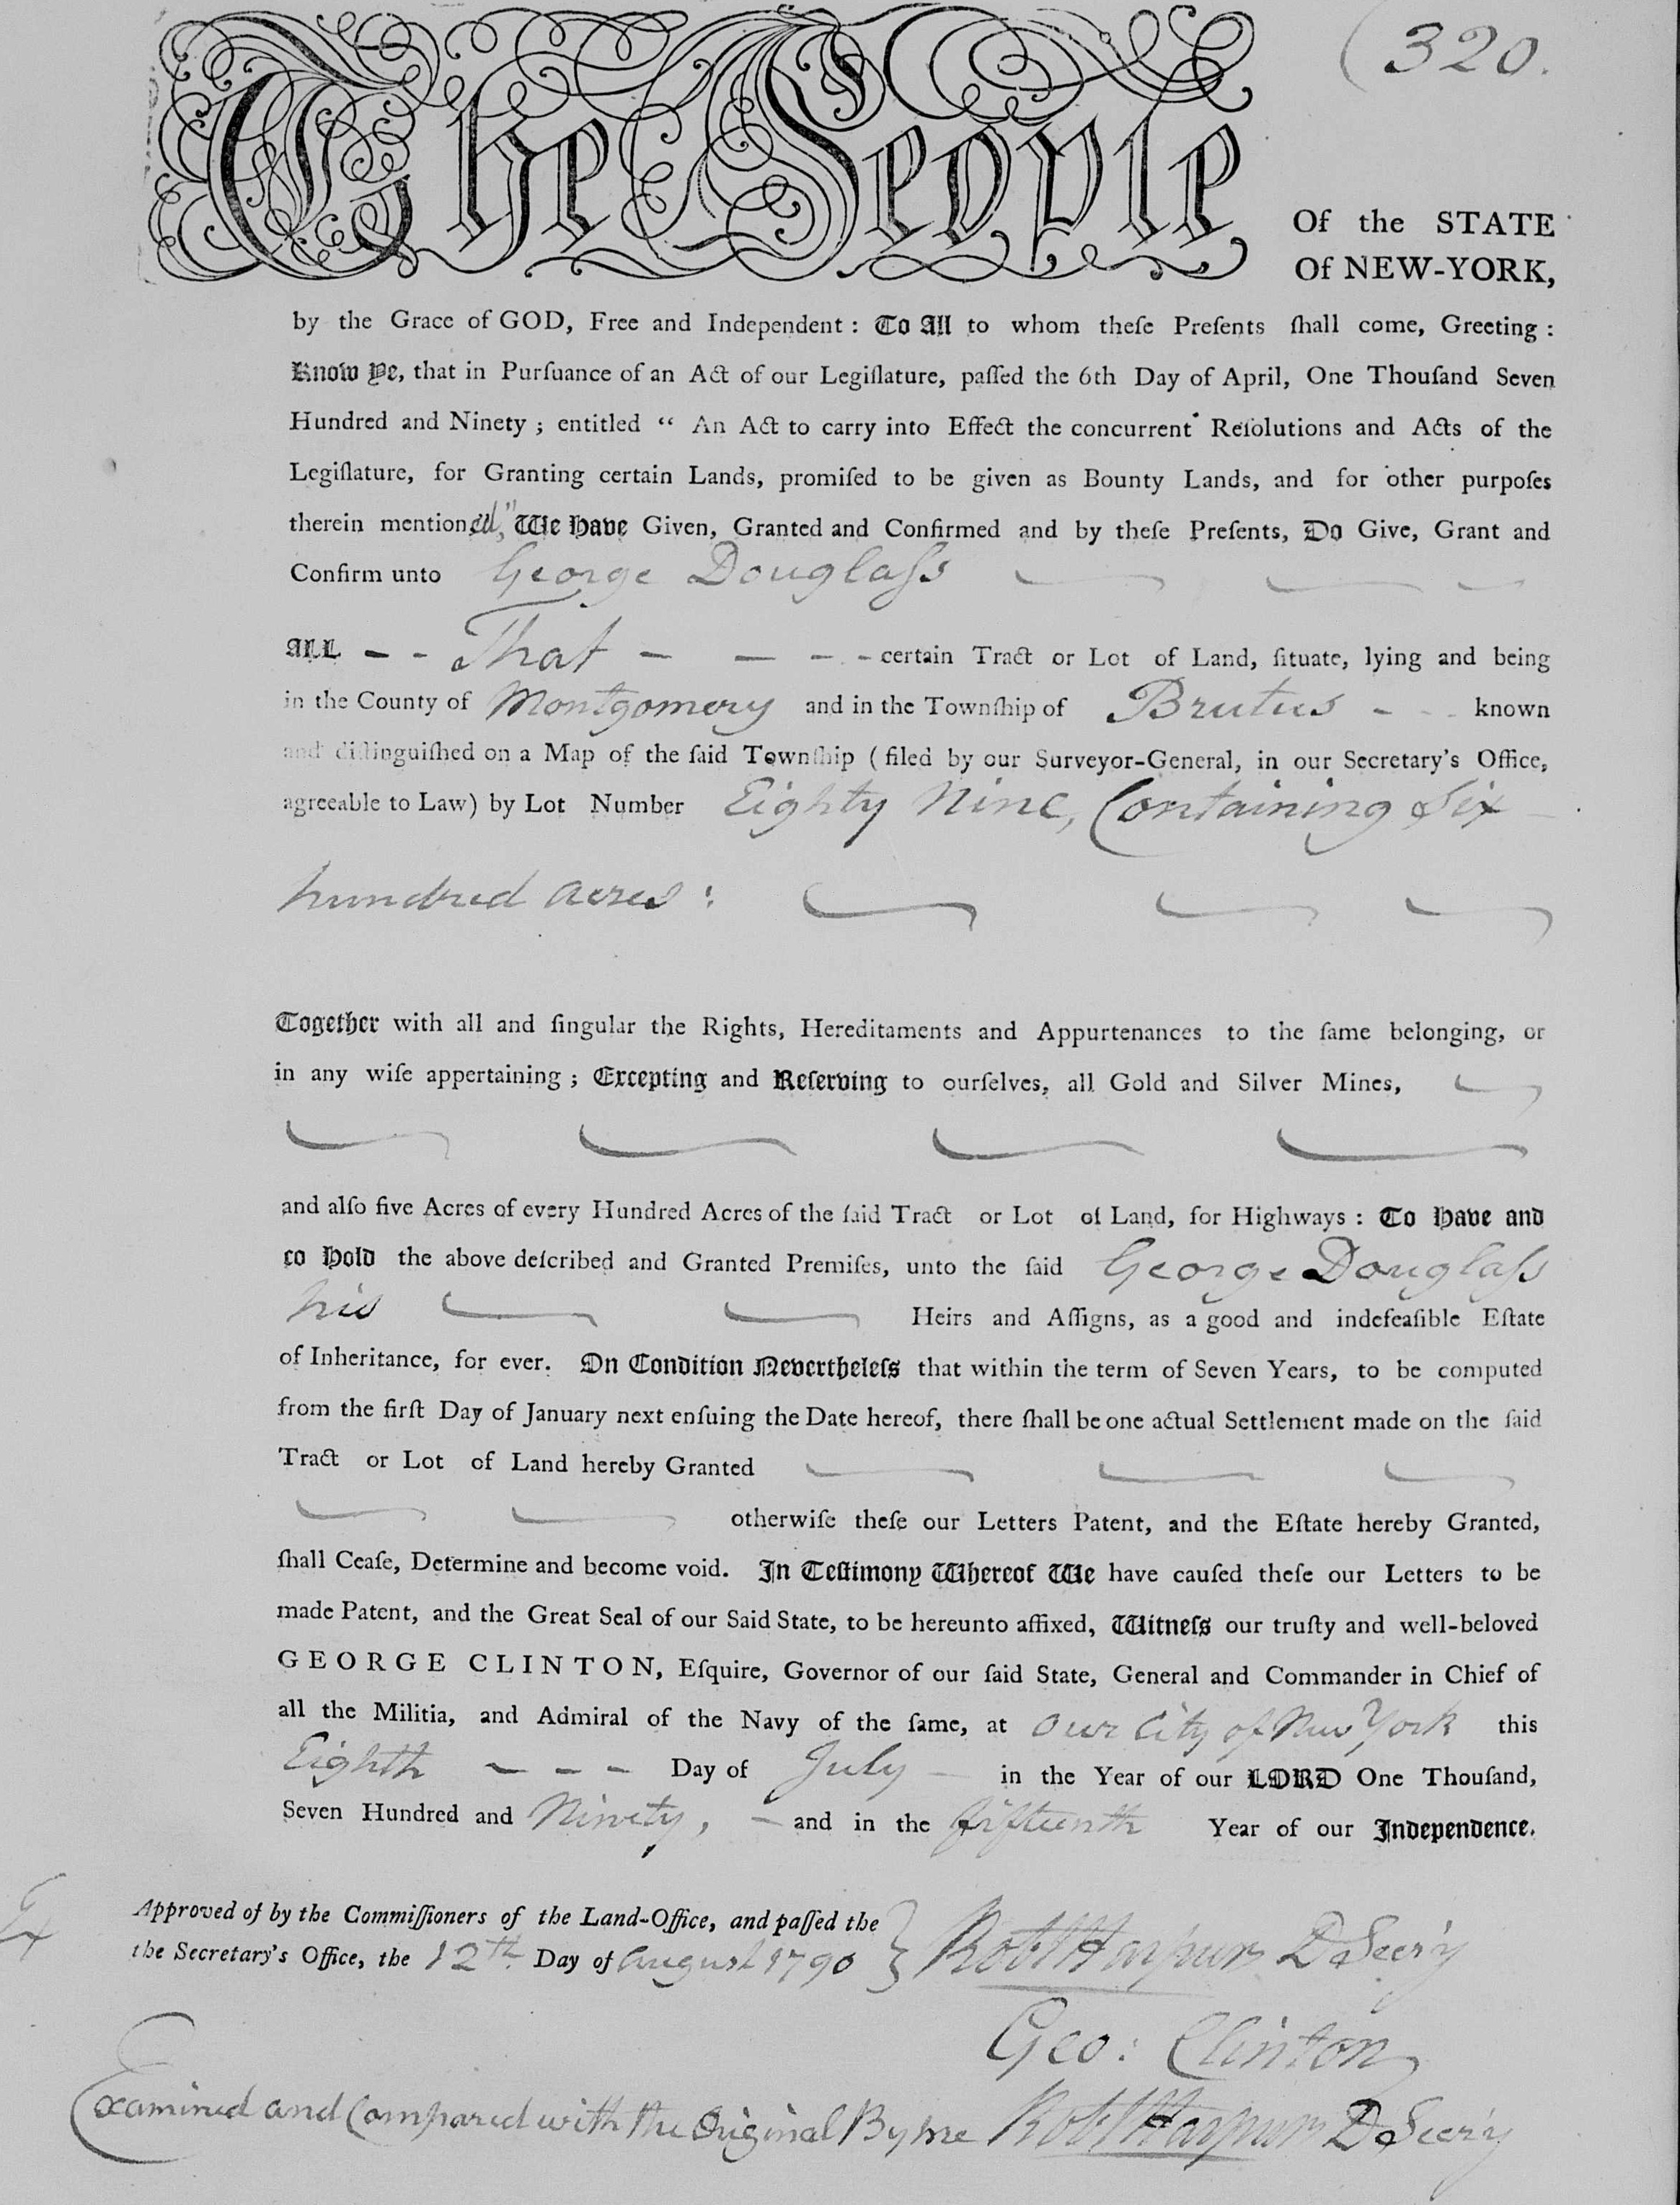 (320.
The People
Of the STATE
Of NEW-YORK,
by the Grace of GOD, Free and Independent : To All to whom theſe Preſents ſhall come, Greeting :
Know Ye, that in Purſuance of an Act of our Legiſlature, paſſed the 6th Day of April, One Thouſand Seven
Hundred and Ninety ; entitled “ An Act to carry into Effect the concurrent Reſolutions and Acts of the
Legiſlature, for Granting certain Lands, promiſed to be given as Bounty Lands, and for other purpoſes
therein mentioned," We Have Given, Granted and Confirmed and by theſe Preſents, Do Give, Grant and
Confirm unto George Douglaſs
ALL - - That - - - - certain Tract or Lot of Land, ſituate, lying and being
in the County of Montgomery and in the Townſhip of Brutus - - known
and diſtinguiſhed on a Map of the ſaid Townſhip ( filed by our Surveyor-General, in our Secretary's Office,
agreeable to Law) by Lot Number Eighty Nine, Containing Six
hundred acres :
Together with all and ſingular the Rights, Hereditaments and Appurtenances to the ſame belonging, or
in any wiſe appertaining ; Excepting and Reſerving to ourſelves, all Gold and Silver Mines,
and alſo five Acres of every Hundred Acres of the ſaid Tract or Lot of Land, for Highways : To Have and
to Hold the above deſcribed and Granted Premiſes, unto the ſaid George Douglaſs
his Heirs and Aſſigns, as a good and indefeaſible Eſtate
of Inheritance, for ever. On Condition Nevertheleſs that within the term of Seven Years, to be computed
from the firſt Day of January next enſuing the Date hereof, there ſhall be one actual Settlement made on the ſaid
Tract or Lot of Land hereby Granted
otherwiſe theſe our Letters Patent, and the Eſtate hereby Granted,
ſhall Ceaſe, Determine and become void. In Teſtimony Whereof We have cauſed theſe our Letters to be
made Patent, and the Great Seal of our Said State, to be hereunto affixed, Witneſs our truſty and well-beloved
GEORGE CLINTON, Eſquire, Governor of our ſaid State, General and Commander in Chief of
all the Militia, and Admiral of the Navy of the ſame, at our City of New York this
Eighth - - - Day of July - in the Year of our LORD One Thouſand,
Seven Hundred and Ninety, - and in the fifteenth Year of our Independence.
Approved of by the Commiſſioners of the Land-Office, and paſſed the
the Secretary's Office, the 12th Day of August 1790 } Robt Harpur D Secry
Geo: Clinton
Examined and Compared with the Original By me Robt Harpur D Secry